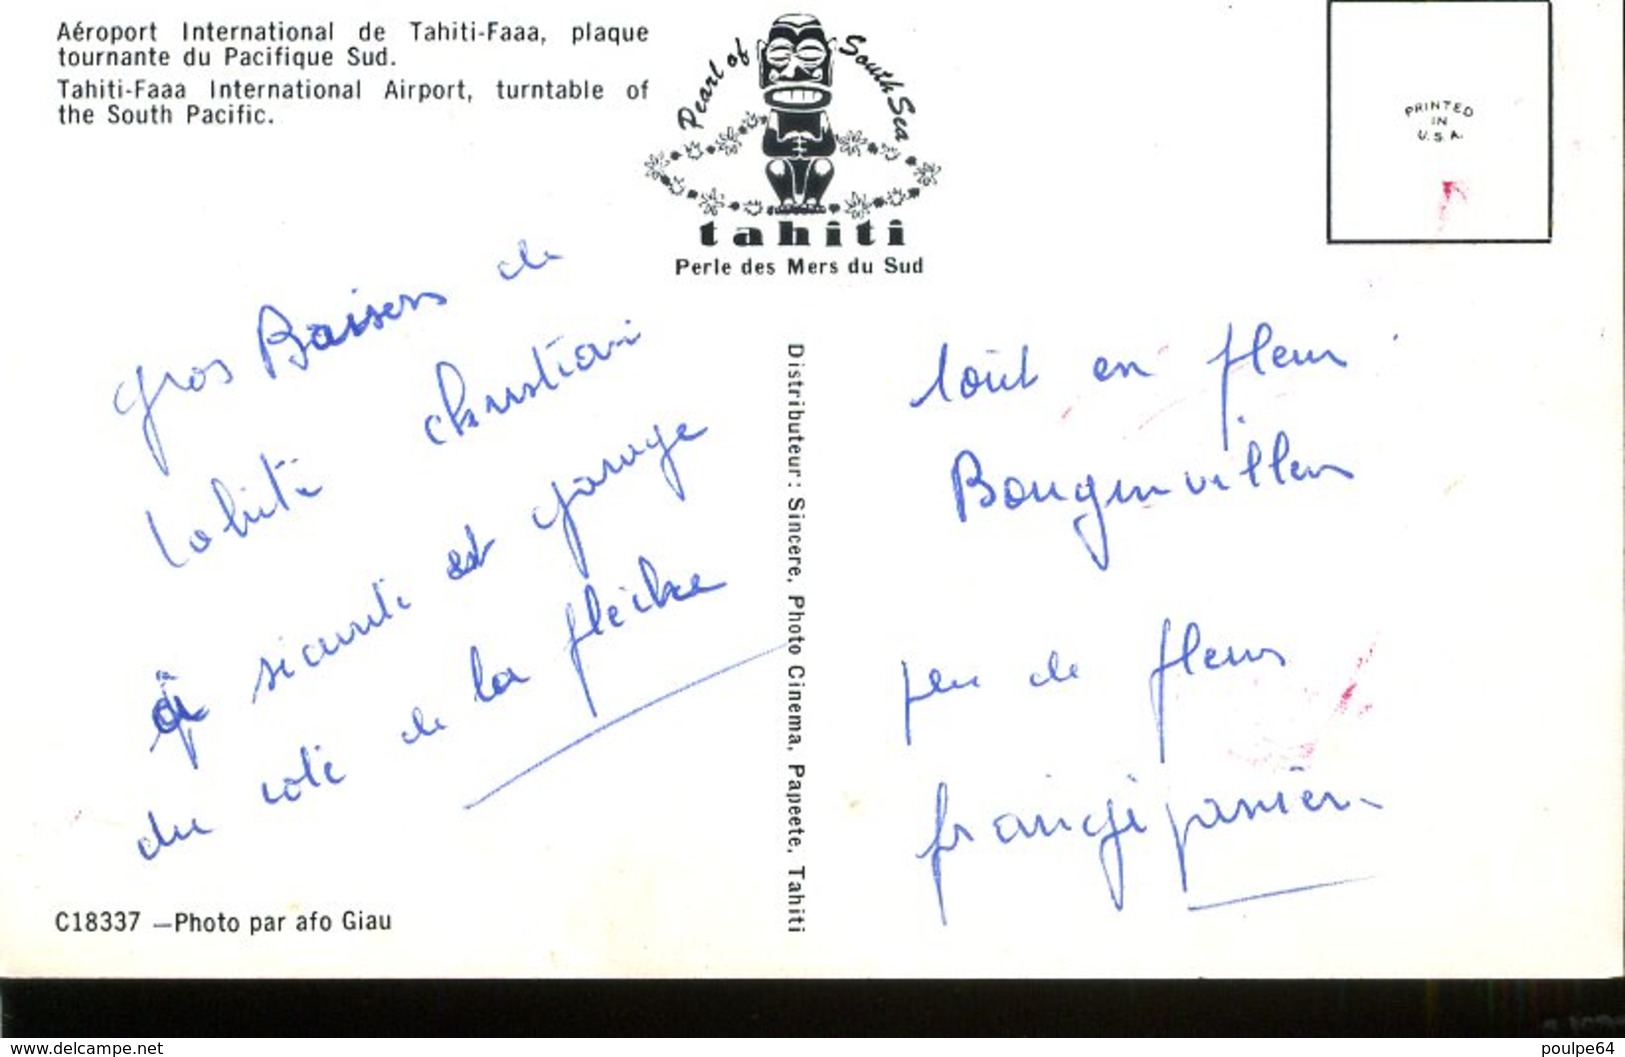 Aéroport International de Tahiti-Faaa, plaque
tournante du Pacifique Sud.
Tahiti-Faaa International Airport, turntable of
the South Pacific.
Pearl of South Sea
tahiti
Perle des Mers du Sud
PRINTED
IN
U.S.A.
gros Baisers de
tahiti christian
sicuriti est garage
du coté de la flèche
Distributeur: Sincere, Photo Cinema, Papeete, Tahiti
tout en fleur
Bougenvillers
peu de fleurs
frangipanier
C18337 —Photo par afo Giau
www.delcampe.net
poulpe64